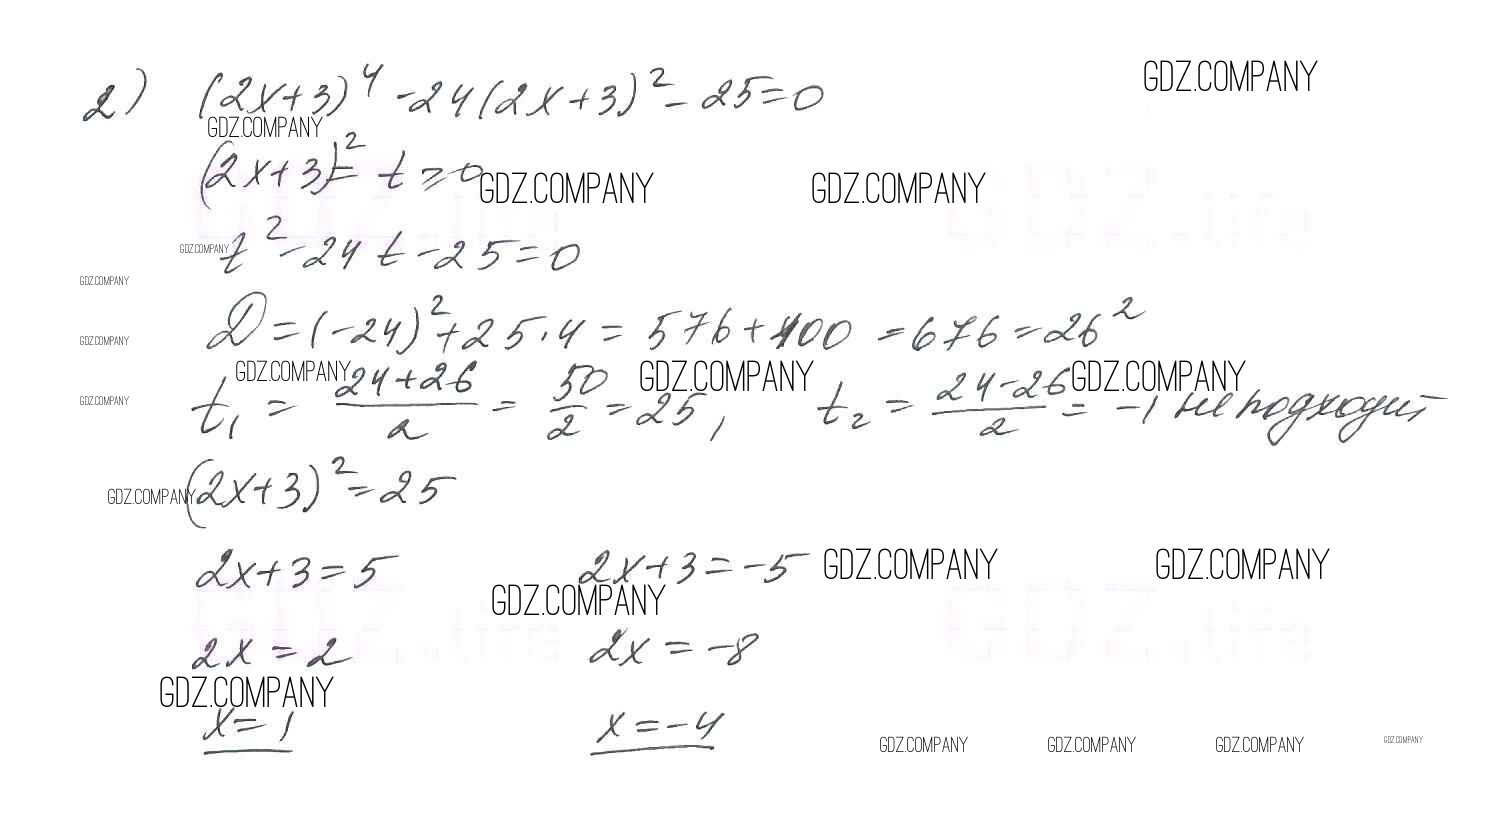 GDZ.COMPANY
2) (2x+3)^4 -24(2x+3)^2 - 25=0
GDZ.COMPANY
(2x+3)^2 = t ⩾ 0
GDZ.COMPANY GDZ.COMPANY
GDZ.COMPANY
t^2 -24t -25=0
GDZ.COMPANY
D=(-24)^2+25·4 = 576+100 =676=26^2
GDZ.COMPANY
GDZ.COMPANY GDZ.COMPANY GDZ.COMPANY
GDZ.COMPANY
t1 = (24+26)/2 = 50/2 = 25, t2 = (24-26)/2 = -1 не подходит
GDZ.COMPANY
(2x+3)^2=25
2x+3=5 2x+3=-5
GDZ.COMPANY GDZ.COMPANY
GDZ.COMPANY
GDZ.life GDZ.life
2x=2 2x=-8
GDZ.COMPANY
x=1 x=-4
GDZ.COMPANY GDZ.COMPANY GDZ.COMPANY GDZ.COMPANY